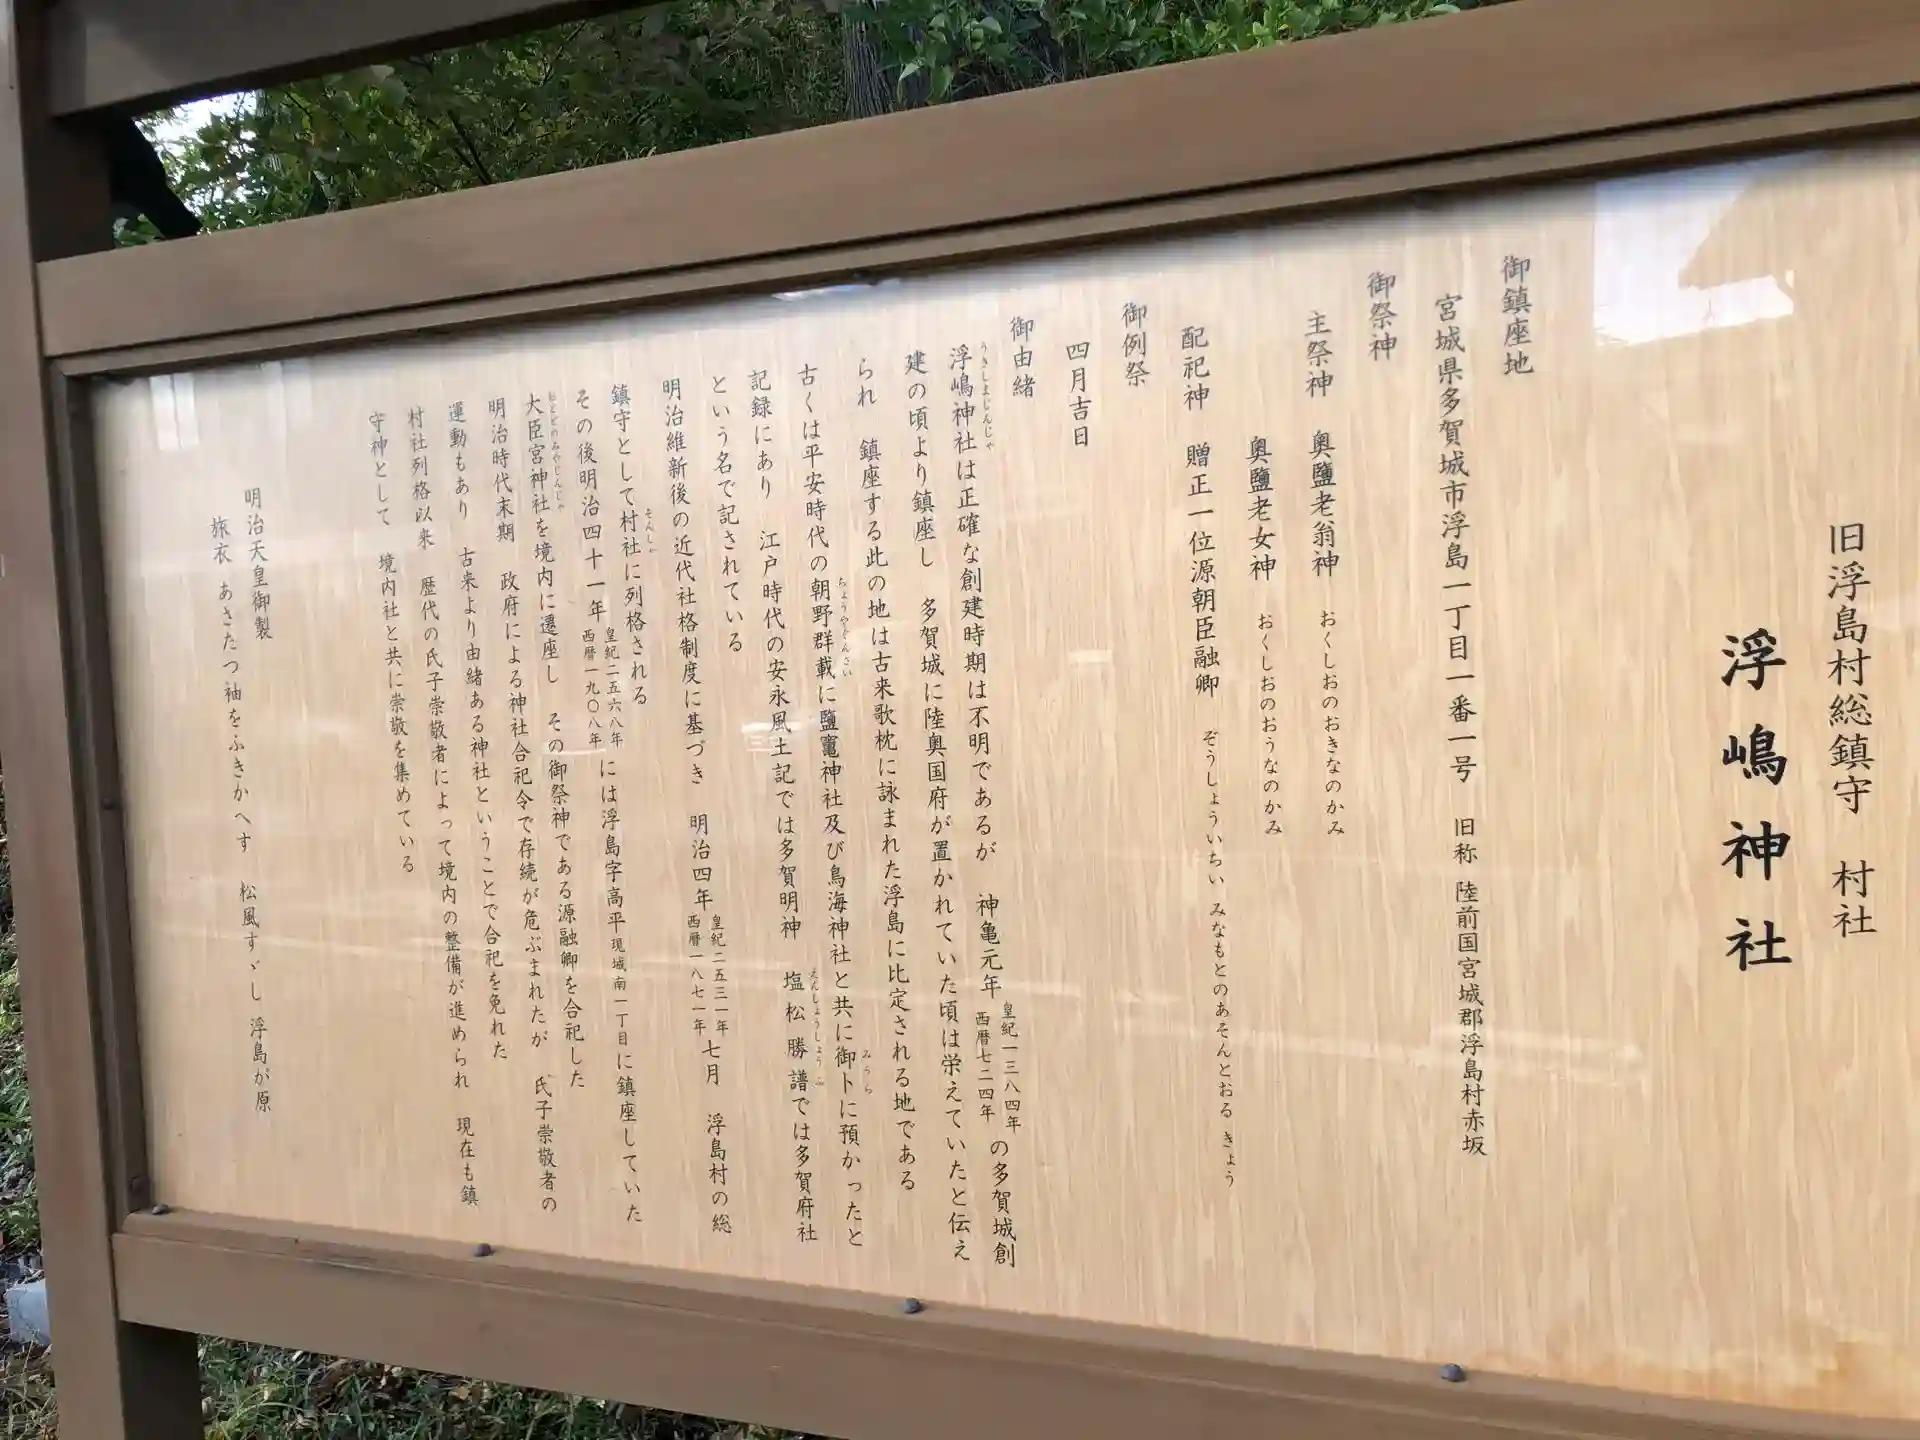 旧浮島村総鎮守　村社
浮嶋神社
御鎮座地
宮城県多賀城市浮島一丁目一番一号　旧称 陸前国宮城郡浮島村赤坂
御祭神
主祭神　奥鹽老翁神　おくしおのおきなのかみ
奥鹽老女神　おくしおのおうなのかみ
配祀神　贈正一位源朝臣融卿　ぞうしょういちい みなもとのあそんとおる きょう
御例祭
四月吉日
御由緒
浮嶋神社は正確な創建時期は不明であるが　神亀元年 皇紀一三八四年 西暦七二四年 の多賀城創
うきしまじんじゃ
建の頃より鎮座し　多賀城に陸奥国府が置かれていた頃は栄えていたと伝え
られ　鎮座する此の地は古来歌枕に詠まれた浮島に比定される地である
古くは平安時代の朝野群載に鹽竈神社及び鳥海神社と共に御卜に預かったと
ちょうやぐんさい　みうら
記録にあり　江戸時代の安永風土記では多賀明神　塩松勝譜では多賀府社
えんしょうしょうふ
という名で記されている
明治維新後の近代社格制度に基づき　明治四年 皇紀二五三一年 西暦一八七一年 七月　浮島村の総
鎮守として村社に列格される
そんしゃ
その後明治四十一年 皇紀二五六八年 西暦一九〇八年 には浮島字高平 現城南一丁目 に鎮座していた
大臣宮神社を境内に遷座し　その御祭神である源融卿を合祀した
おとどのみやじんじゃ
明治時代末期　政府による神社合祀令で存続が危ぶまれたが　氏子崇敬者の
運動もあり　古来より由緒ある神社ということで合祀を免れた
村社列格以来　歴代の氏子崇敬者によって境内の整備が進められ　現在も鎮
守神として　境内社と共に崇敬を集めている
明治天皇御製
旅衣　あさたつ袖をふきかへす　松風すゞし　浮島が原